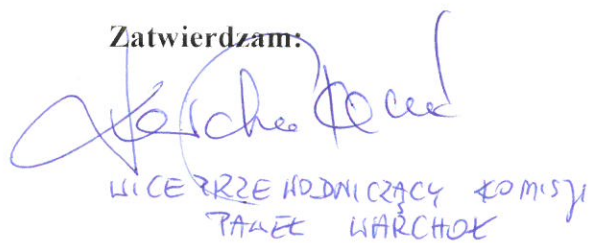 Zatwierdzam:
WICEPRZEWODNICZĄCY KOMISJI
PAWEŁ WARCHOŁ